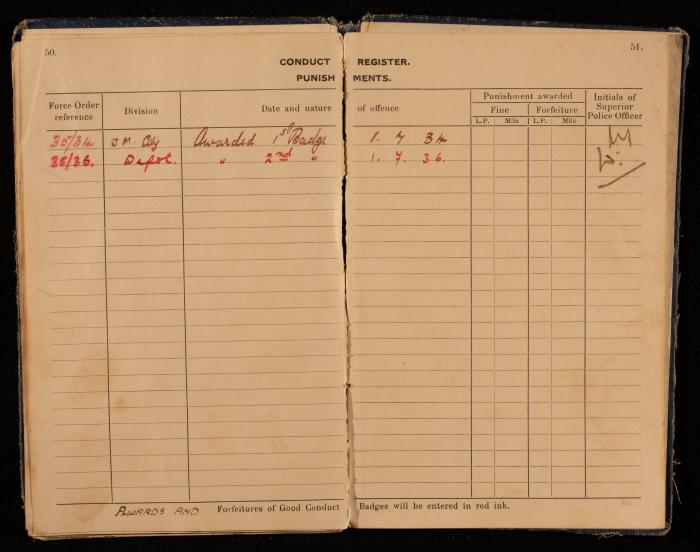 50.
51.
CONDUCT REGISTER.
PUNISHMENTS.
Force Order reference
Division
Date and nature of offence
Punishment awarded
Fine
Forfeiture
L.P. Mils L.P. Mils
Initials of Superior Police Officer
35/34 Awarded 1st Badge 1. 7. 34
35/36. Depot. " 2nd " 1. 7. 36.
AWARDS AND Forfeitures of Good Conduct Badges will be entered in red ink.